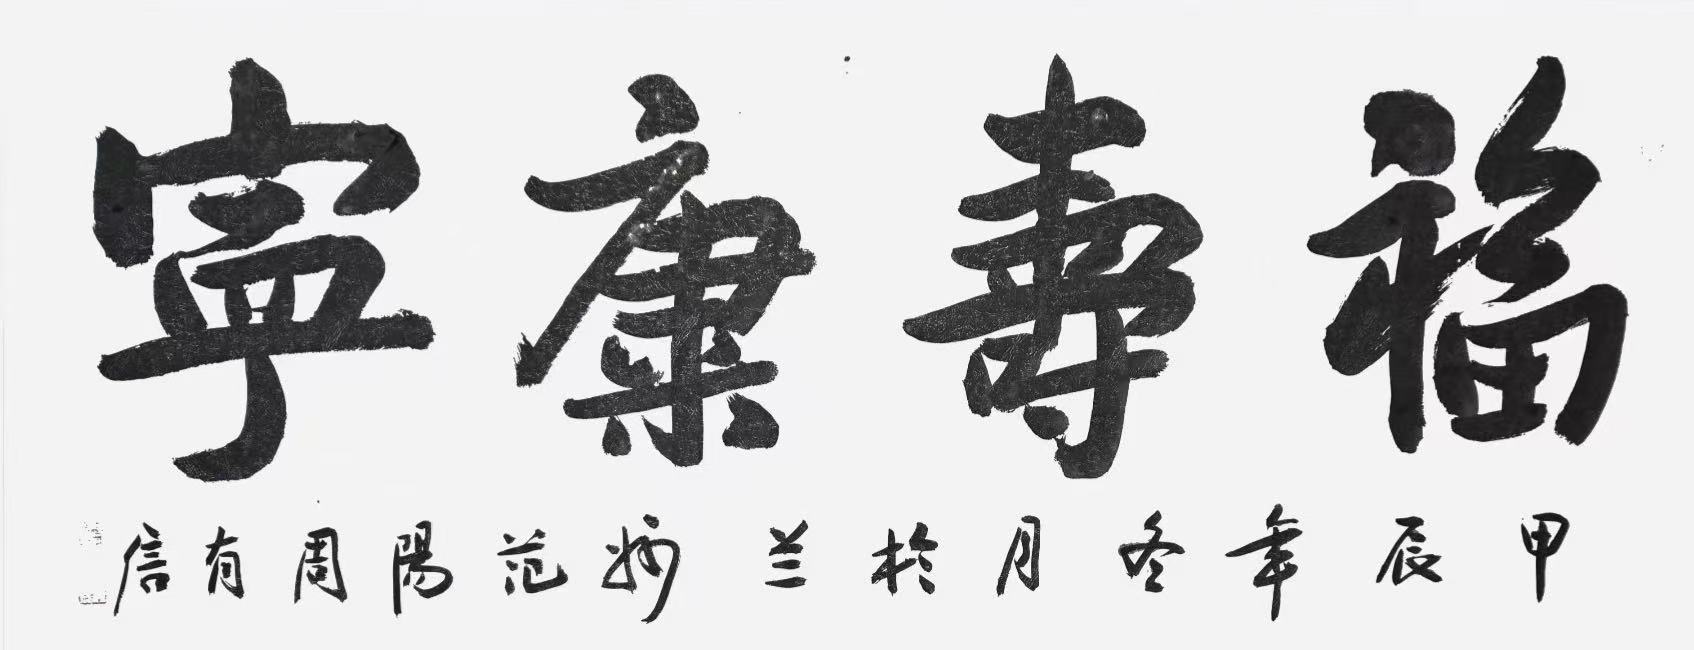 福壽康寧
甲辰年冬月於兰州范陽周有信